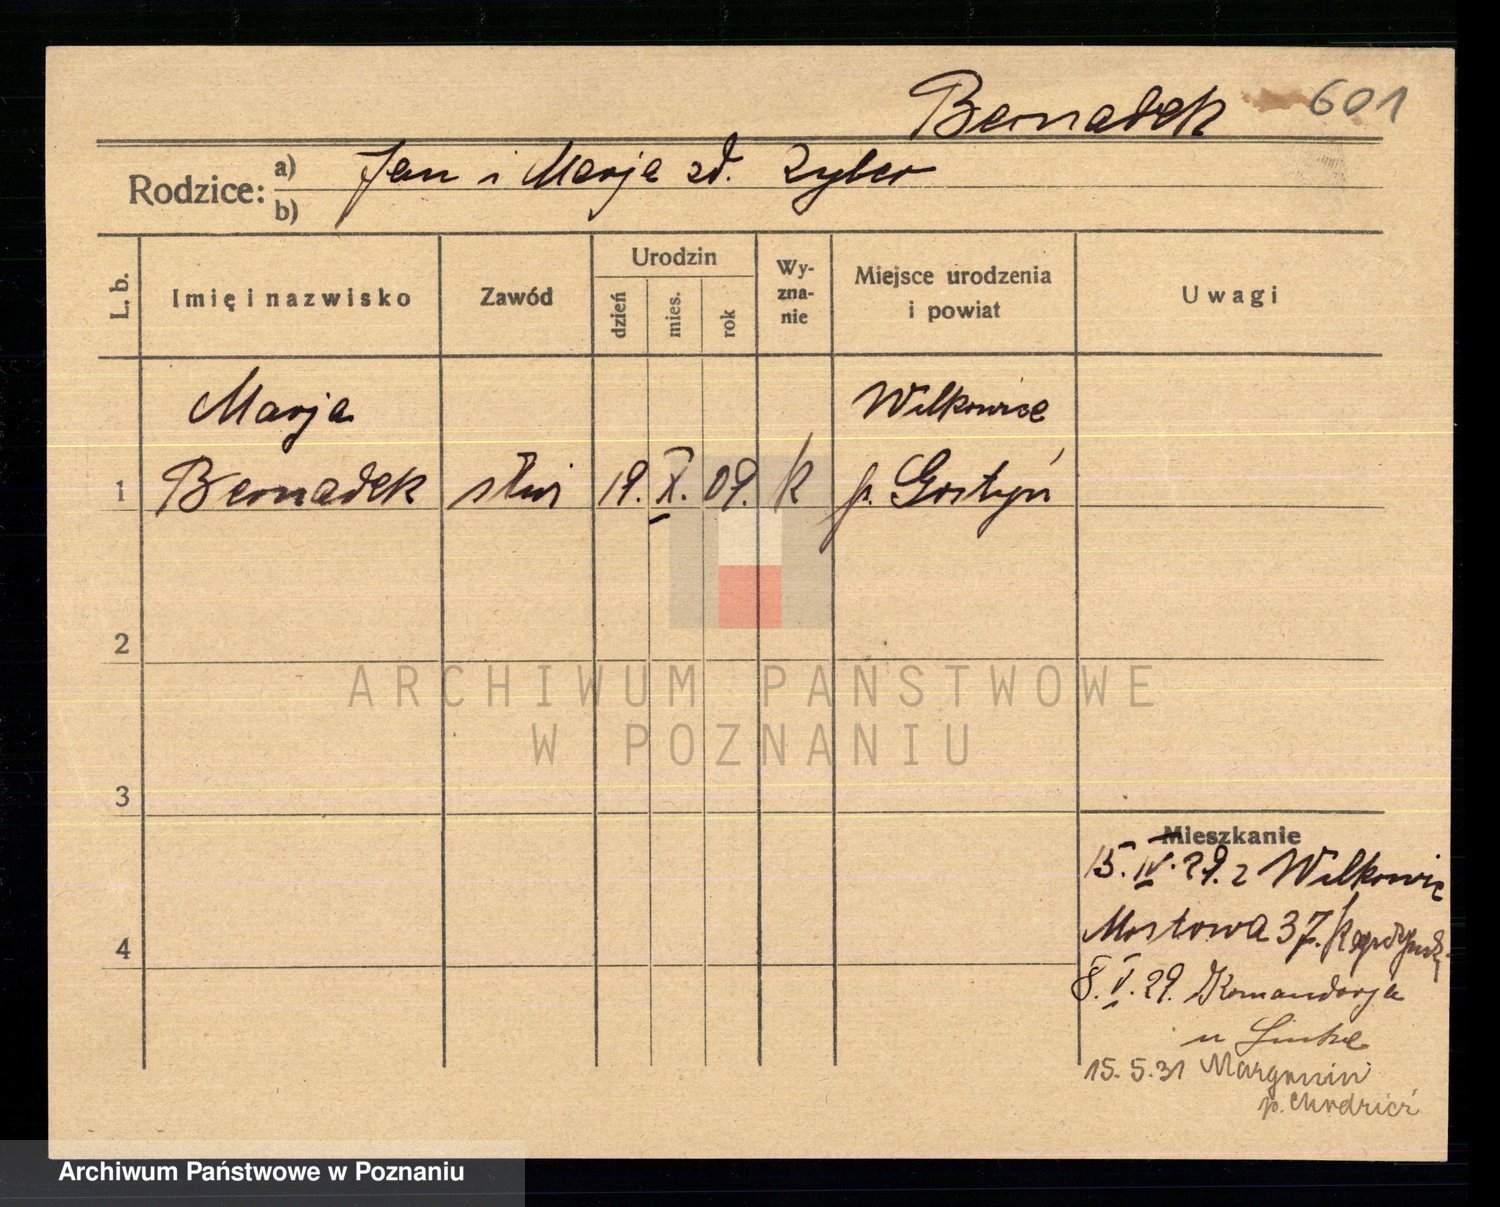 Bernadek 601
Rodzice: a) Jan i Marja zd. Zyber
b)
L. b. Imię i nazwisko Zawód Urodzin dzień mies. rok Wyznanie Miejsce urodzenia i powiat Uwagi
Marja Wilkowice
1 Bernadek służ 19. X. 09. k p. Gostyń
2
3
Mieszkanie
15. IV. 29. z Wilkowic
Mostowa 37.
4
8. V. 29. Komandorja
u Linke
15. 5. 31 Margonin
p. Chodzież
ARCHIWUM PAŃSTWOWE
W POZNANIU
Archiwum Państwowe w Poznaniu